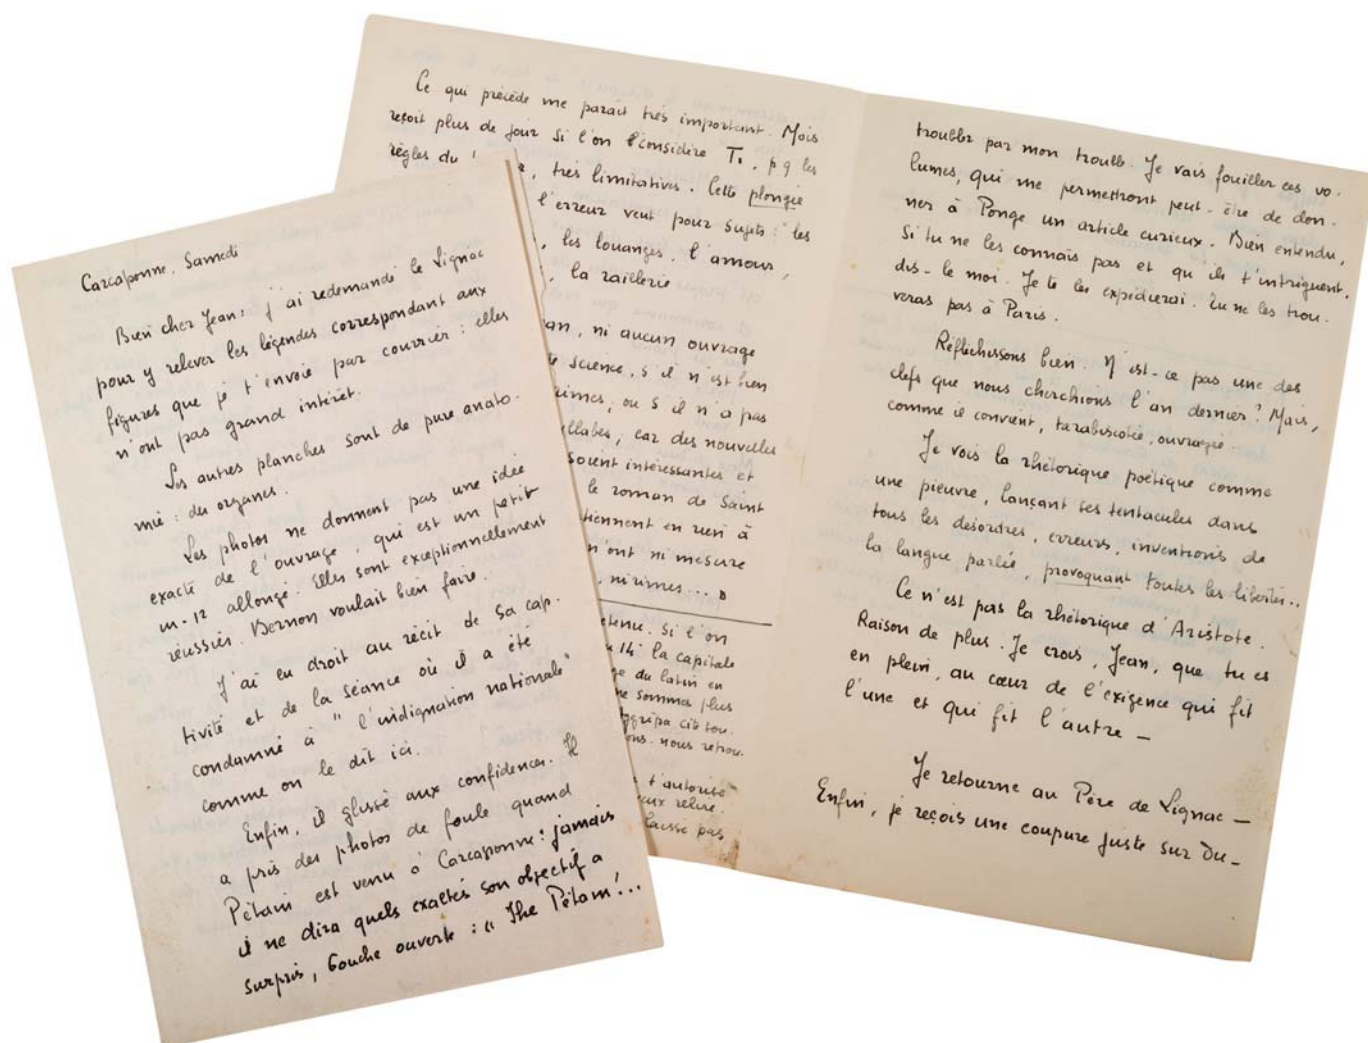 Carcassonne. Samedi
Bien cher Jean: j'ai redemandé le Lignac
pour y relever les légendes correspondant aux
figures que je t'envoie par courrier: elles
n'ont pas grand intérêt.
Les autres planches sont de pure anato-
mie: des organes.
Les photos ne donnent pas une idée
exacte de l'ouvrage, qui est un petit
in-12 allongé. Elles sont exceptionnellement
réussies. Bernon voulait bien faire.
J'ai eu droit au récit de sa cap-
tivité et de la séance où il a été
condamné à "l'indignation nationale"
comme on le dit ici.
Enfin, il glisse aux confidences. Il
a pris des photos de foule quand
Pétain est venu à Carcassonne: jamais
il ne dira quels exaltés son objectif a
surpris, bouche ouverte:
Pétain!...
Ce qui précède me paraît très important. Mais
reçoit plus de jour si l'on considère
les
règles du
, très limitatives. Cette plongée
l'erreur veut pour sujets: "les
, les louanges, l'amour,
, la raillerie
, ni aucun ouvrage
science, s'il n'est bien
rimes, ou s'il n'a pas
; car des nouvelles
soient intéressantes et
le roman de Saint
tiennent en rien à
n'ont ni mesure
, ni rimes...»
Si l'on
14e la capitale
du latin en
sommes plus
Agrippa
nous retrou-
t'autorise
relire.
laisse pas
troubler par mon trouble. Je vais fouiller ces vo-
lumes, qui me permettront peut-être de don-
ner à Ponge un article curieux. Bien entendu,
si tu ne les connais pas et qu'ils t'intriguent,
dis-le moi. Je te les expédierai. Tu ne les trou-
veras pas à Paris.
Réfléchissons bien. N'est-ce pas une des
clefs que nous cherchions l'an dernier? Mais,
comme il convient, tarabiscotée, ouvragée -
Je vois la rhétorique poétique comme
une pieuvre, lançant ses tentacules dans
tous les désordres, erreurs, inventions de
la langue parlée, provoquant toutes les libertés..
Ce n'est pas la rhétorique d'Aristote.
Raison de plus. Je crois, Jean, que tu es
en plein, au cœur de l'exigence qui fit
l'une et qui fit l'autre -
Je retourne au Père de Lignac -
Enfin, je reçois une coupure juste sur Du-